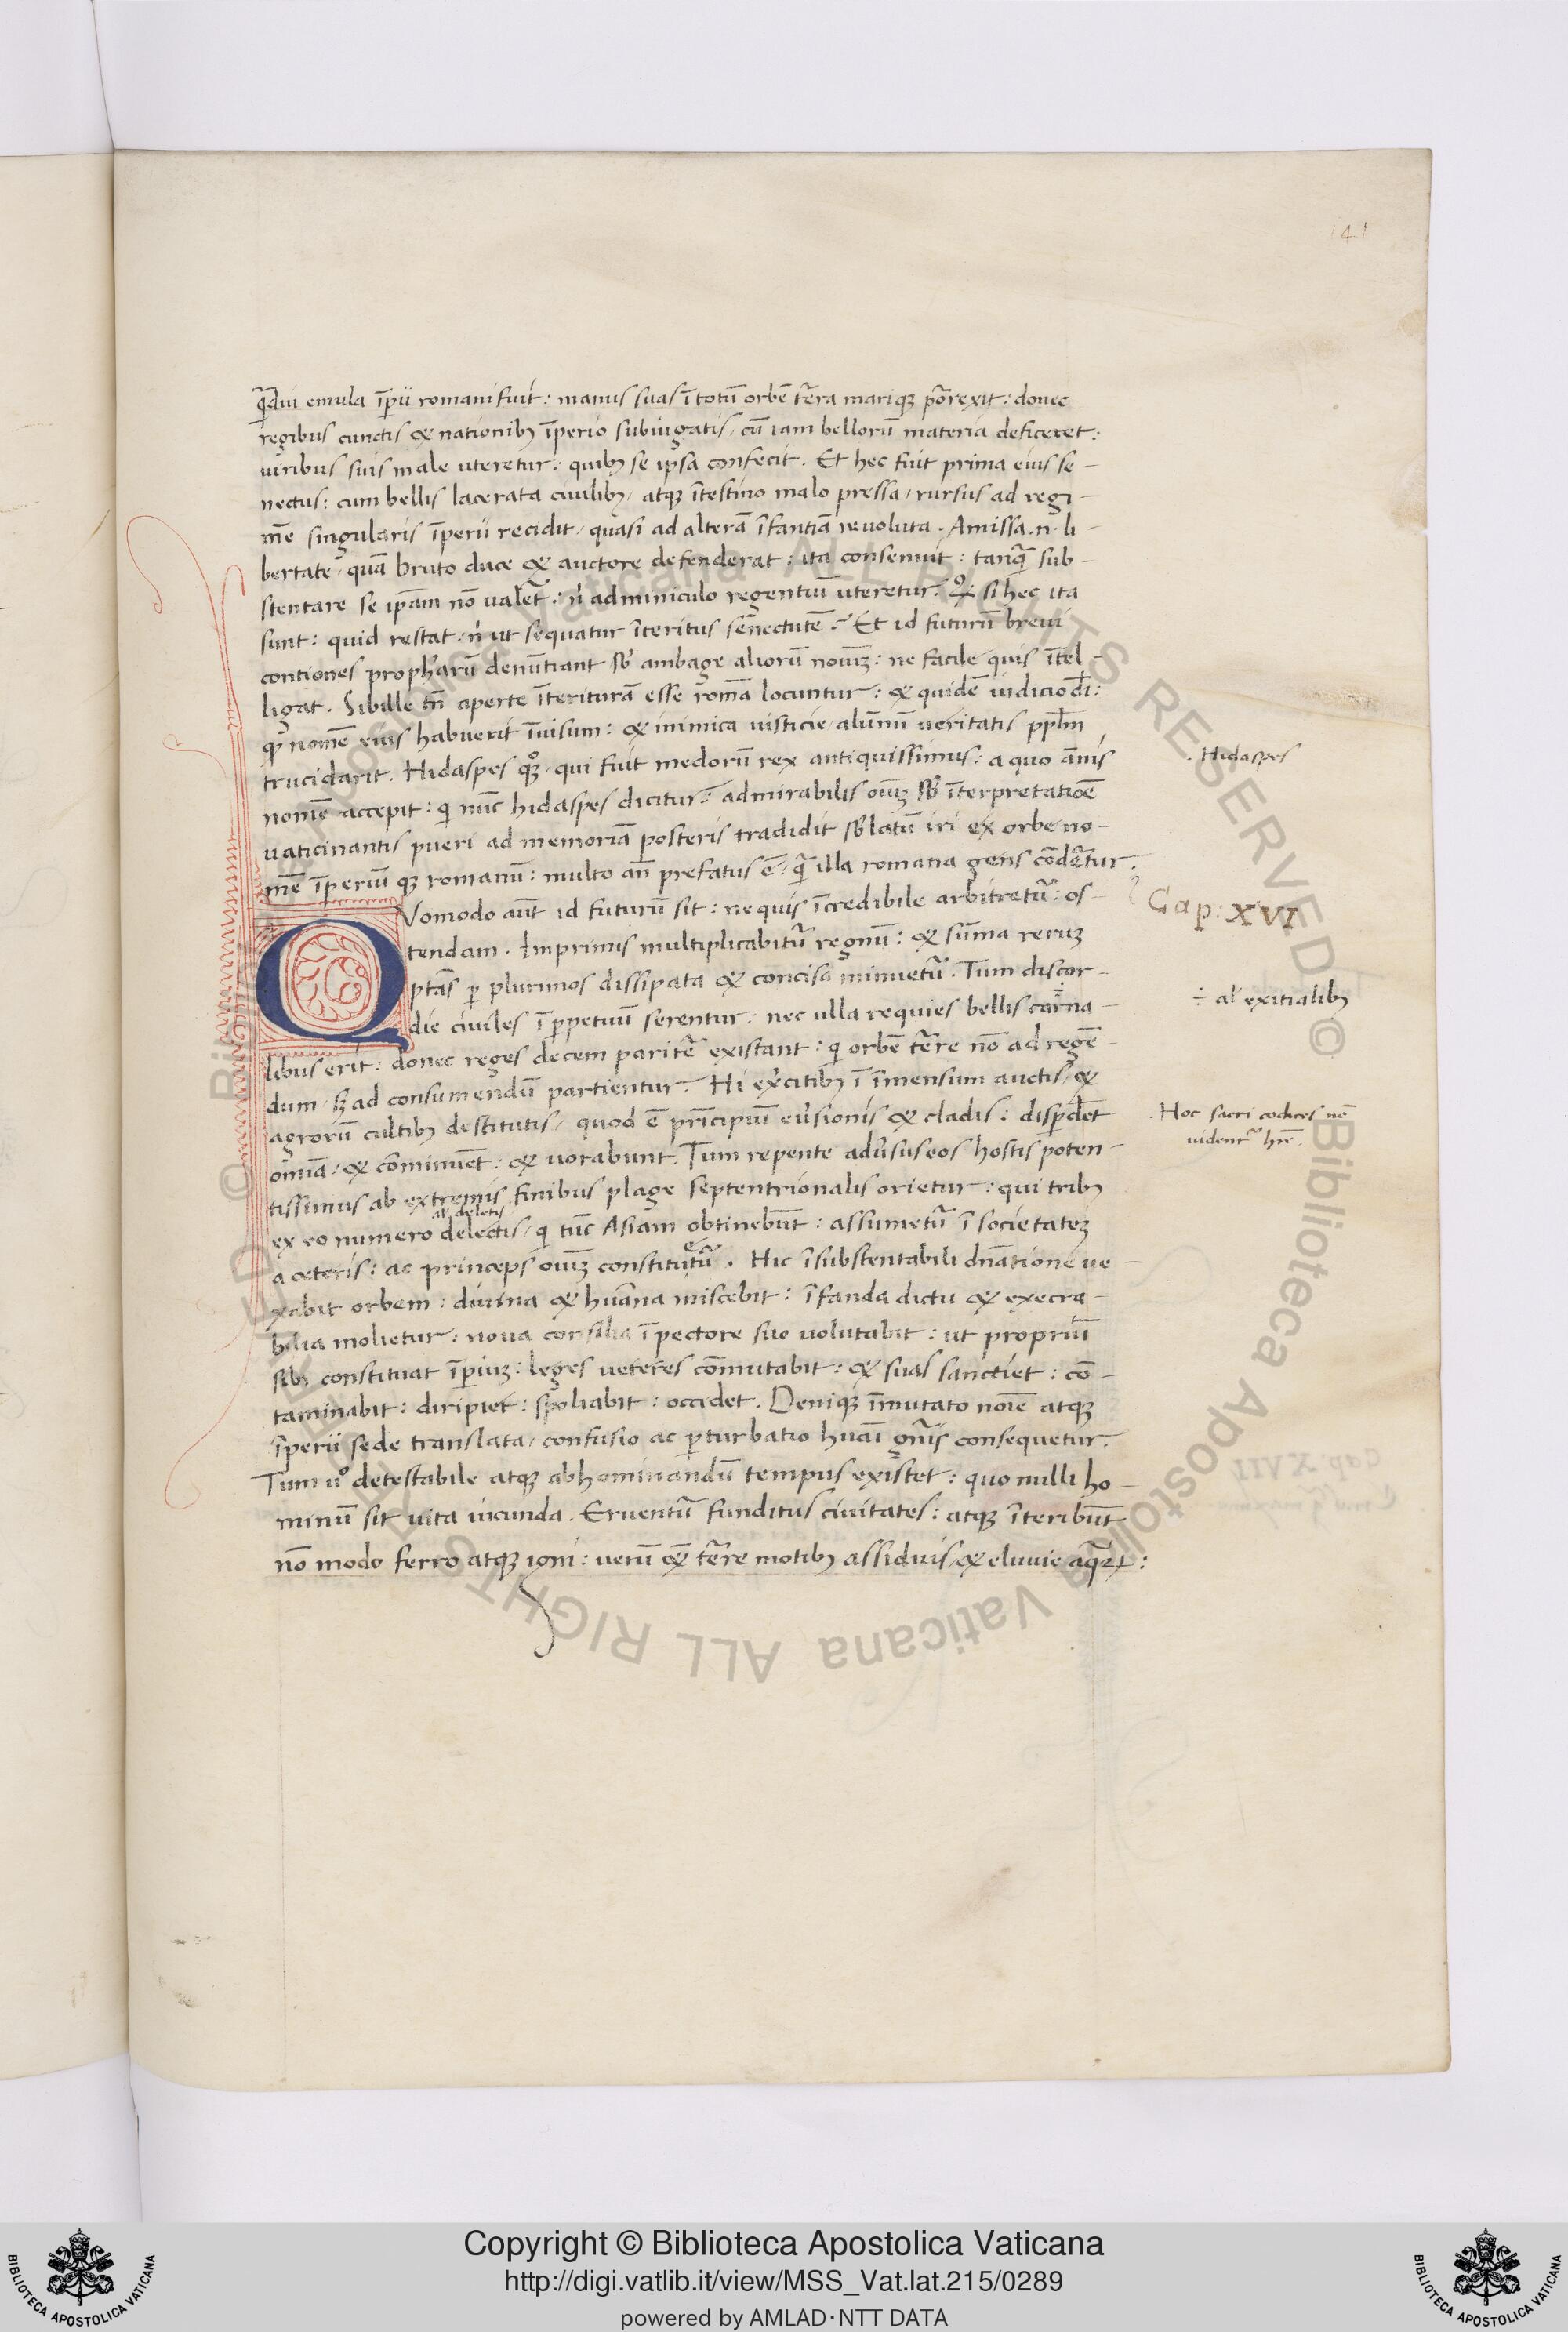 141
q̄diu emula īperii romani fuit: manus suas ī totū orbē t̄era mariqꝫ porrexit: donec
regibus cunctis & nationibꝫ īperio subiugatis, cū iam bellorū materia deficeret:
uiribus suis male uteretur: quibꝫ se ipsa confecit. Et hec fuit prima eius se-
nectus: cum bellis lacerata ciuilibꝫ, atqꝫ ītestino malo pressa, rursus ad regi-
mē singularis īperii recidit, quasi ad alterā īfantiā reuoluta. Amissa .n. li-
bertate, quā bruto duce & auctore defenderat: ita consenuit: tanq̄ sub-
stentare se ip̄am nō ualēt: n̄ adminiculo regentiū uteretur. Qꝫ si hec ita
sunt: quid restat: n̄ ut sequatur īteritus senectutē? Et id futurū breui
contiones prophārū denūtiant sb̄ ambage aliorū noīuꝫ: ne facile quis ītel-
ligat. Sibille tn̄ aperte īteriturā esse romā locuntur: & quidē iudicio dī:
qꝫ nomē eius habuerit īuisum: & inimica iusticie, alūnū ueritatis ppl̄m
trucidarit. Hidaspes qꝫ, qui fuit medorū rex antiquissimus: a quo ānis
nomē accepit: qi nūc hidaspes dicitur: admirabilis oīuꝫ sb̄ īterpretatiōe
uaticinantis pueri ad memoriā posteris tradidit sb̄latū iri ex orbe no-
mē īperiū qꝫ romanū: multo an̄ prefatus ē: q̄ illa romana gens cōderetur.
Quomodo aūt id futurū sit: ne quis īcredibile arbitretur̄: os-
tendam. Imprimis multiplicabitur̄ regnū: & sūma reruꝫ
ptās p plurimos dissipata & concisa minuetur̄. Tum discor-
die ciuiles ī ppetuū serentur: nec ulla requies bellis carna-
libus erit: donec reges decem paritē existant: qi orbē t̄erre nō ad regē-
dum, sꝫ ad consumendū partientur. Hi ex̄citibꝫ ī īmensum auctis, &
agrorū cultibꝫ destitutis, quod ē prīcipiū euēsionis & cladis: dispdēt
oīnia, & cōminuēt: & uorabunt. Tum repente adūsus eos hostis poten-
tissimus ab extremis finibus plage septentrionalis orietur: qui tribꝫ
al̄ deletis
ex eo numero delectis, qi tūc Asiam obtinebūt: assumetur̄ ī societateꝫ
a ceteris: ac princeps oīuꝫ constituetur̄. Hic īsubstentabili dn̄atione ue-
xabit orbem: diuina & huāna miscebit: īfanda dictu & execra-
bilia molietur: noua consilia ī pectore suo uolutabit: ut propriū
sibi constituat īperiuꝫ: leges ueteres cōmutabit: & suas sanctiet: cō-
taminabit: diripiet: spoliabit: occidet. Deniqꝫ īmutato noīe atqꝫ
īperii sede translata, confusio ac pturbatio huāi gn̄is consequetur.
Tum uº detestabile atqꝫ abhominandū tempus existet: quo nulli ho-
minū sit uita iucunda. Eruentur̄ funditus ciuitates: atqꝫ īteribūt
nō modo ferro atqꝫ igni: uerū & t̄erre motibꝫ assiduis, & eluuie aq̄ꝝ:
Hidaspes
Cap: XVI
÷ al̄ exitialibꝫ
Hoc sacri codices nō
uidentur̄ hr̄e.
Copyright © Biblioteca Apostolica Vaticana
http://digi.vatlib.it/view/MSS_Vat.lat.215/0289
powered by AMLAD·NTT DATA
BIBLIOTECA APOSTOLICA VATICANA
BIBLIOTECA APOSTOLICA VATICANA
© Biblioteca Apostolica Vaticana ALL RIGHTS RESERVED
© Biblioteca Apostolica Vaticana ALL RIGHTS RESERVED